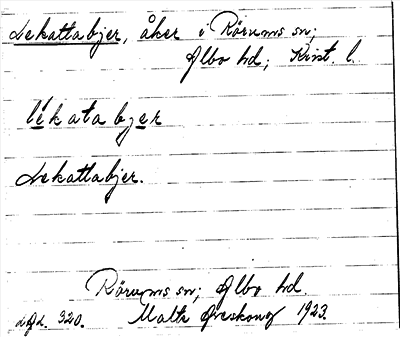 Lekattabjer, åker i Rörums sn;
Albo hd; Krist. l.
lékata bjer
Lekattabjer.
Rörums sn; Albo hd.
320. Malte 1923.